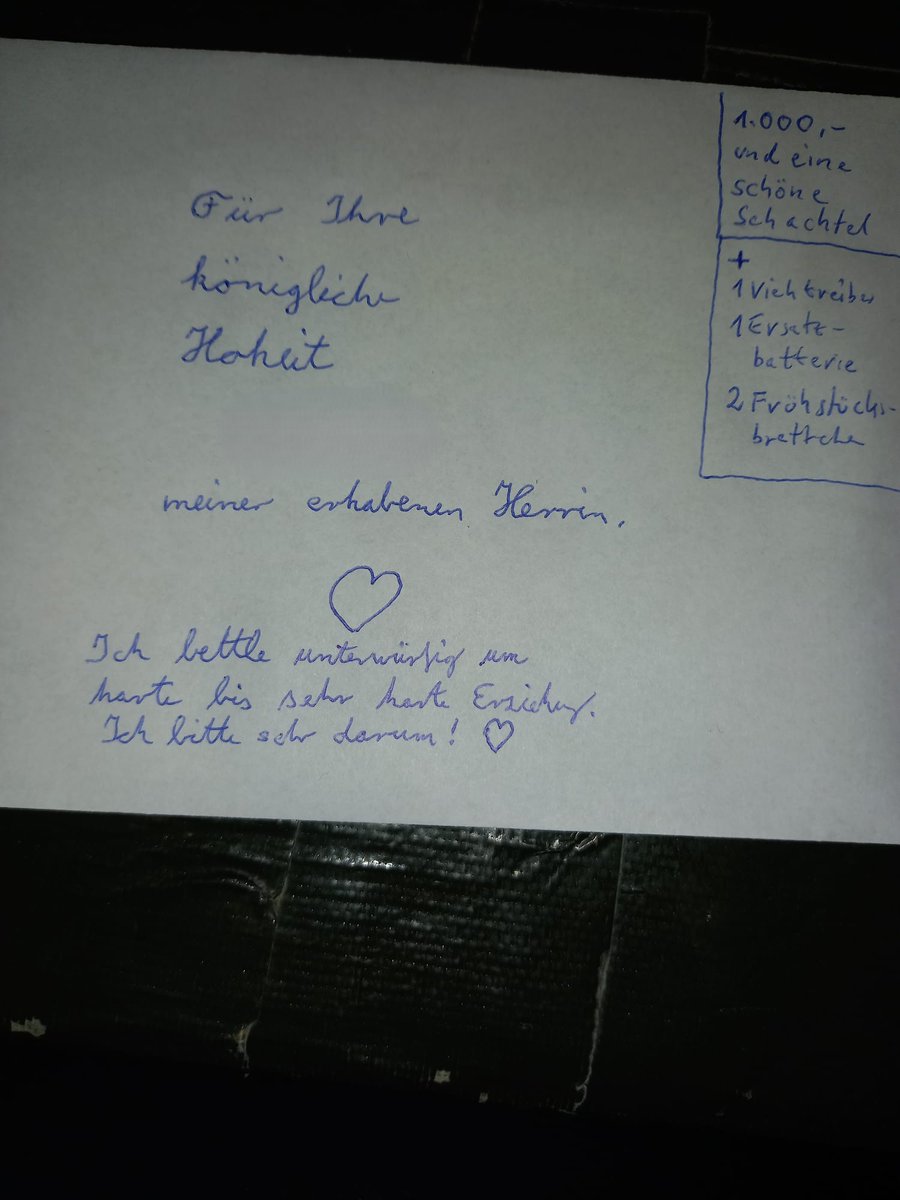 Für Ihre
königliche
Hoheit
meiner erhabenen Herrin.
Ich bettle unterwürfig um
harte bis sehr harte Erziehung.
Ich bitte sehr darum!
1.000,-
und eine
schöne
Schachtel
+
1 Viehtreiber
1 Ersatz-
batterie
2 Frühstücks-
brettchen